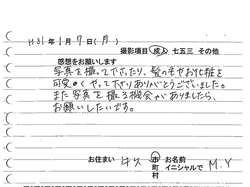 H31年1月7日(月)
撮影項目 成人 七五三 その他
感想をお願いします
写真を撮って下さったり、髪のセットやお化粧を
可愛くやって下さりありがとうございました。
また写真を撮る機会がありましたら、
お願いしたいです。
お住まい 市町村 お名前 イニシャルで M.Y